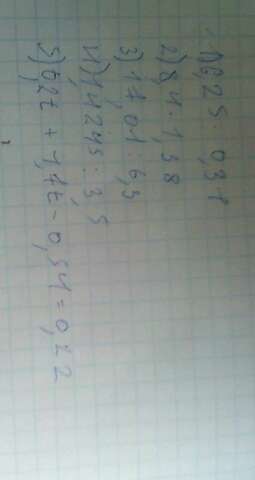 1) 6,25 · 0,31
2) 8,4 · 1,38
3) 17,01 : 6,3
4) 1,4245 : 3,5
5) 6,2t + 1,4t - 0,54 = 0,22